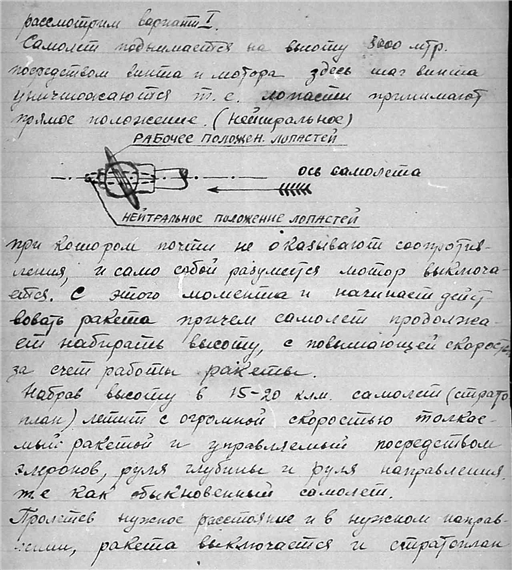 рассмотрим вариант I.
Самолет подымается на высоту 8000 мтр.
посредством винта и мотора здесь шаг винта
уничтожаются т.е. лопасти принимают
прямое положение. (нейтральное)
РАБОЧЕЕ ПОЛОЖЕН. ЛОПАСТЕЙ
ось самолета
НЕЙТРАЛЬНОЕ ПОЛОЖЕНИЕ ЛОПАСТЕЙ
при котором почти не оказывают сопротив-
ления, и само собой разумеется мотор выключа-
ется. С этого момента и начинает дейст
вовать ракета причем самолет продолжа-
ет набирать высоту, с повышающей скорост
за счет работы ракеты.
Набрав высоту в 15-20 клм. самолет (страто
план) летит с огромной скоростью толкае-
мый ракетой и управляемый посредством
элеронов, руля глубины и руля направления.
же как обыкновенный самолет.
Пролетев нужное расстояние и в нужном направ-
ракета выключается и стратоплан